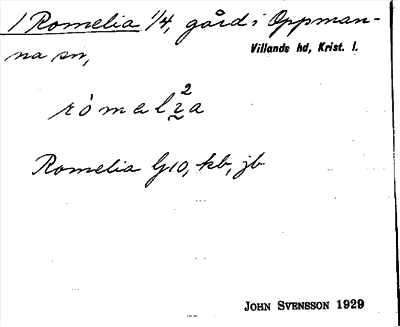 1 Romelia 1/4, gård i Oppman-
na sn,
Villands hd, Krist. l.
2
Romelia G10, kb, jb
JOHN SVENSSON 1929